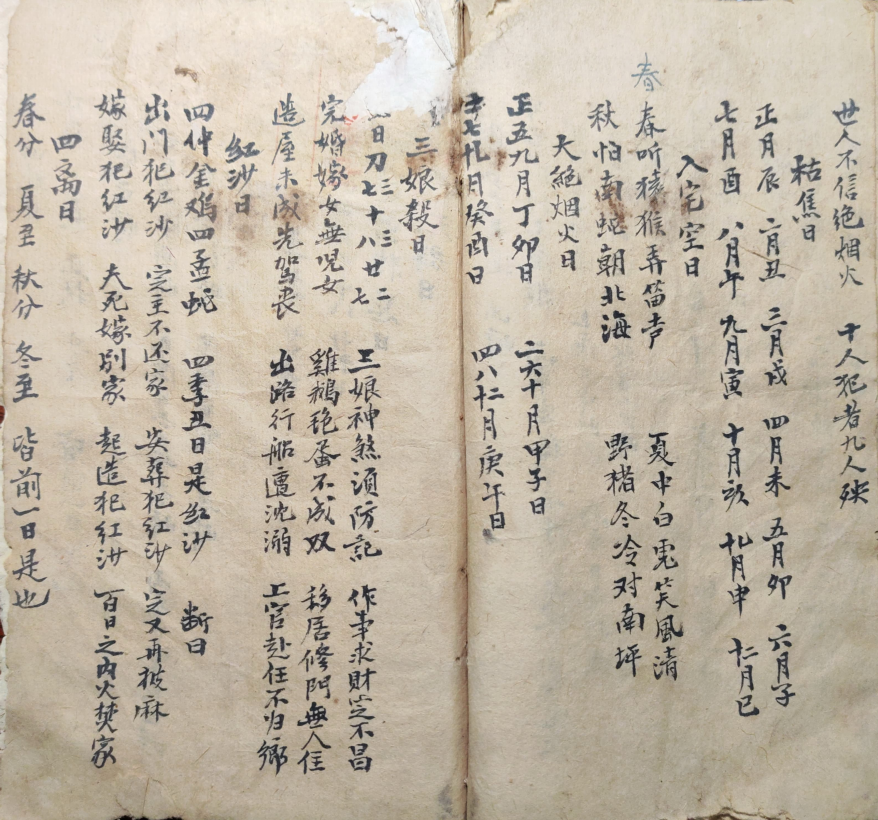 世人不信绝烟火　十人犯者九人殃
枯焦日
正月辰　二月丑　三月戍　四月未　五月卯　六月子
七月酉　八月午　九月寅　十月亥　十一月申　十二月巳
入宅空日
春
春听猿猴弄笛声　夏中白虎笑風清
秋怕南蛇朝北海　野猪冬冷对南坪
大絕烟火日
正五九月丁卯日　二六十月甲子日
三七十一月癸酉日　四八十二月庚午日
三娘殺日
日刀七　十三十八　廿二七　三娘神煞須防記　作事求財定不昌
完婚嫁女無児女　雞鵝艳蛋不成双　移居修門無人住
造屋未成先駕喪　出路行船遭沈溺　上官赴任不归鄉
紅沙日
四仲金鸡四孟蛇　四季丑日是红沙　断曰
出门犯红沙　定主不还家　安葬犯红沙　定又再被麻
嫁娶犯红沙　夫死嫁别家　起造犯红沙　百日之内火焚家
四离日
春分　夏至　秋分　冬至　皆前一日是也